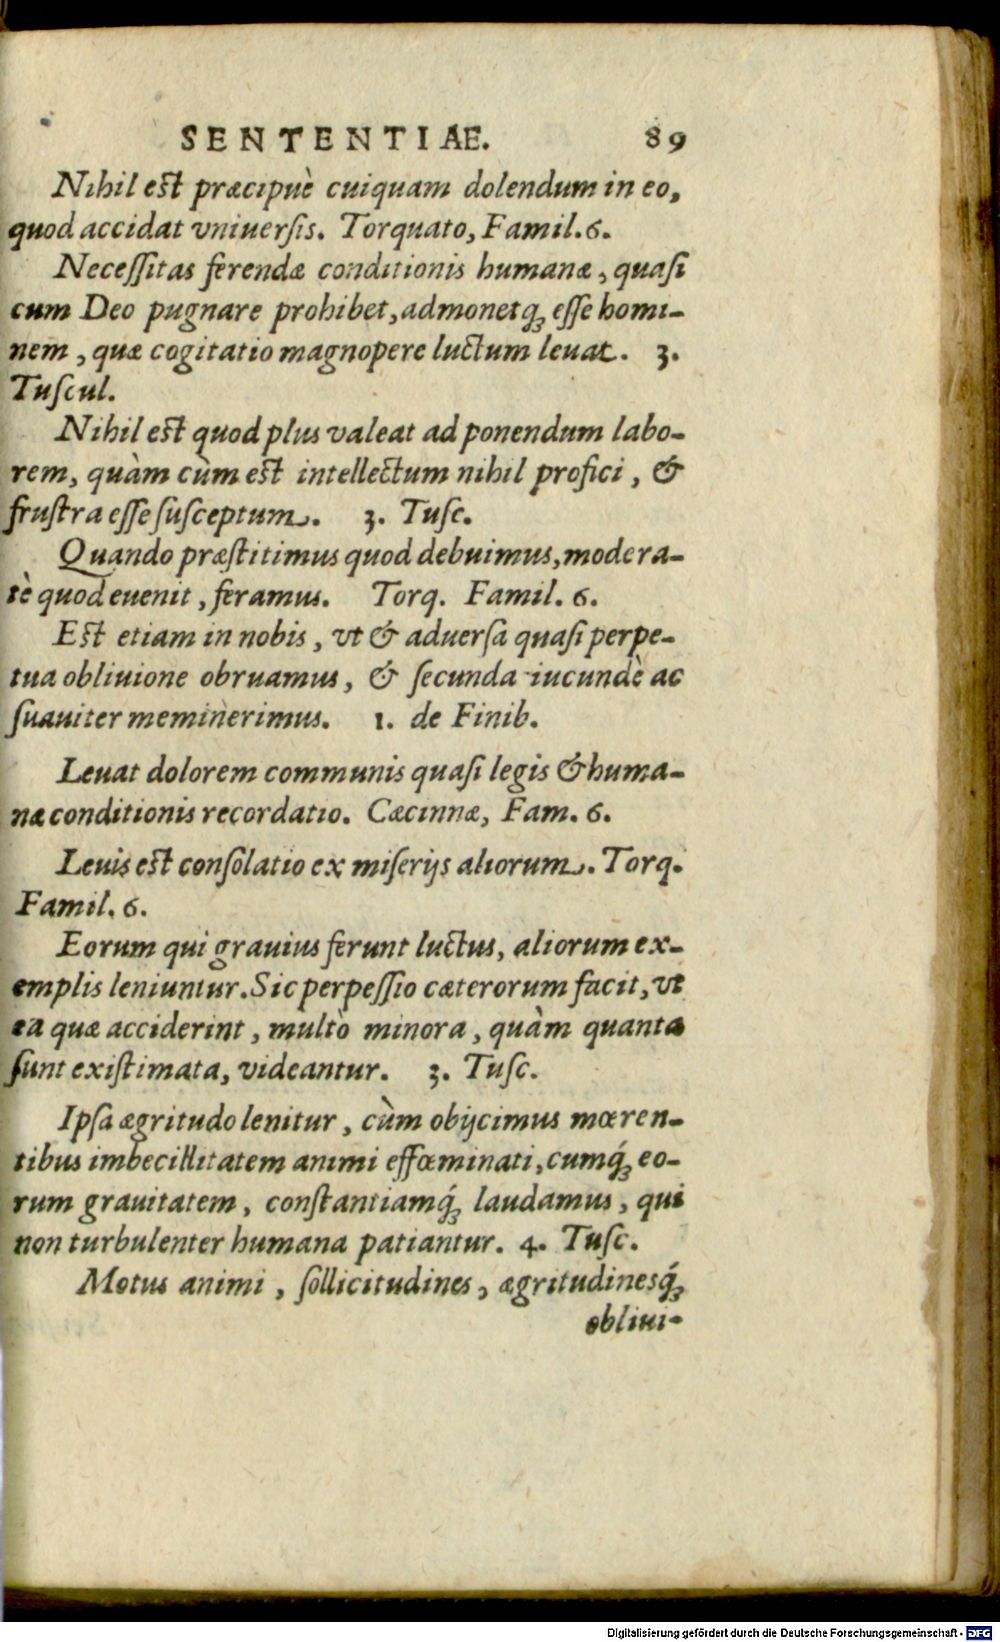 SENTENTIAE. 89
Nihil est præcipuè cuiquam dolendum in eo,
quod accidat vniuersis. Torquato, Famil. 6.
Neceſſitas ferendæ conditionis humanæ, quaſi
cum Deo pugnare prohibet, admonetq́; eſſe homi-
nem, quæ cogitatio magnopere luctum leuat. 3.
Tuſcul.
Nihil est quod plus valeat ad ponendum labo-
rem, quàm cùm est intellectum nihil profici, &
fruſtra eſſe ſuſceptum. 3. Tuſc.
Quando præſtitimus quod debuimus, modera-
tè quod euenit, feramus. Torq. Famil. 6.
Est etiam in nobis, vt & aduerſa quaſi perpe-
tua obliuione obruamus, & ſecunda iucundè ac
ſuauiter meminerimus. 1. de Finib.
Leuat dolorem communis quaſi legis & huma-
næ conditionis recordatio. Cæcinnæ, Fam. 6.
Leuis est conſolatio ex miſerijs aliorum. Torq.
Famil. 6.
Eorum qui grauius ferunt luctus, aliorum ex-
emplis leniuntur. Sic perpeſſio cæterorum facit, vt
ea quæ acciderint, multò minora, quàm quanta
ſunt exiſtimata, videantur. 3. Tuſc.
Ipſa ægritudo lenitur, cùm obijcimus mœren-
tibus imbecillitatem animi effœminati, cumq́; eo-
rum grauitatem, conſtantiamq́; laudamus, qui
non turbulenter humana patiantur. 4. Tuſc.
Motus animi, ſollicitudines, ægritudinesq́;
obliui-
Digitalisierung gefördert durch die Deutsche Forschungsgemeinschaft - DFG